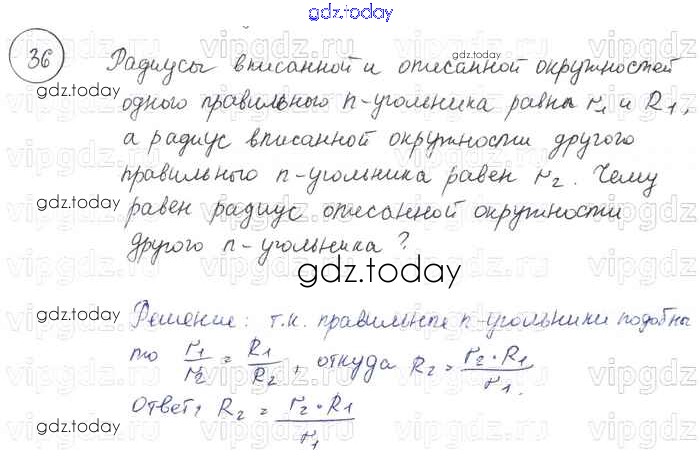 gdz.today
36
Радиусы вписанной и описанной окружностей
одного правильного n-угольника равны r₁ и R₁,
а радиус вписанной окружности другого
правильного n-угольника равен r₂. Чему
равен радиус описанной окружности
другого n-угольника?
gdz.today
Решение: т.к. правильные n-угольники подобны
то r₁/r₂ = R₁/R₂, откуда R₂ = r₂·R₁/r₁.
Ответ: R₂ = r₂·R₁/r₁
gdz.today
gdz.today
gdz.today
gdz.today
gdz.today
vipgdz.ru